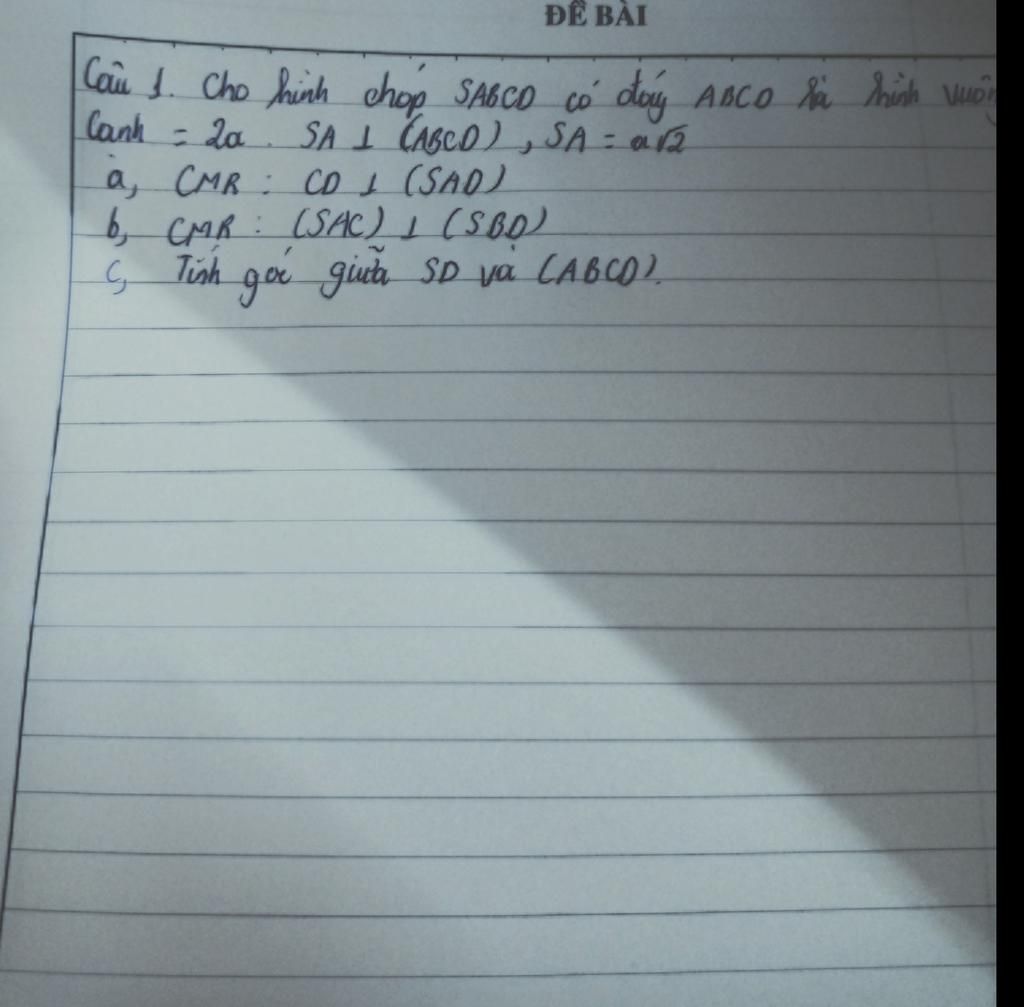 ĐỀ BÀI
Câu 1. Cho hình chóp SABCD có đáy ABCD là hình vuông
Cạnh = 2a. SA ⊥ (ABCD), SA = a√2
a, CMR: CD ⊥ (SAD)
b, CMR: (SAC) ⊥ (SBD)
c, Tính góc giữa SD và (ABCD).